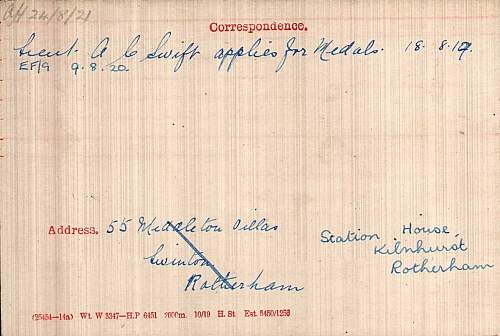 OH 24/8/21
Correspondence.
Lieut. A C Swift applies for Medals. 18.8.19.
EF/9 9.8.20
Address. 55 Middleton Villas
Swinton
Rotherham
Station House,
Kilnhurst
Rotherham
(25454—14a) Wt. W 3347—H.P 6451 2000m. 10/19 H. St Est 5450/1256